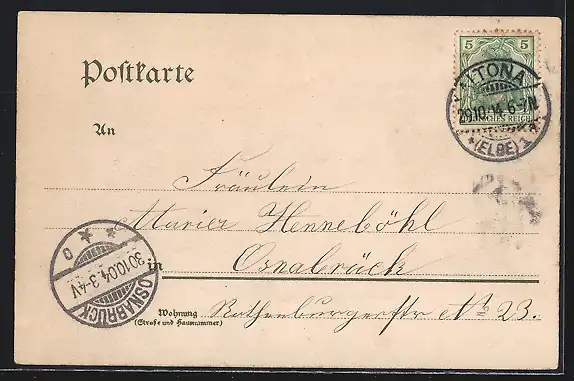 Postkarte
5 5
ALTONA
29.10.04. 6-7N
DEUTSCHES REICH
*(ELBE) 1
An
Fräulein
Marier Henneböhl
in Osnabrück
Wohnung Rothenburgerstr № 23.
(Straße und Hausnummer)
OSNABRÜCK
30.10.04. 3-4V